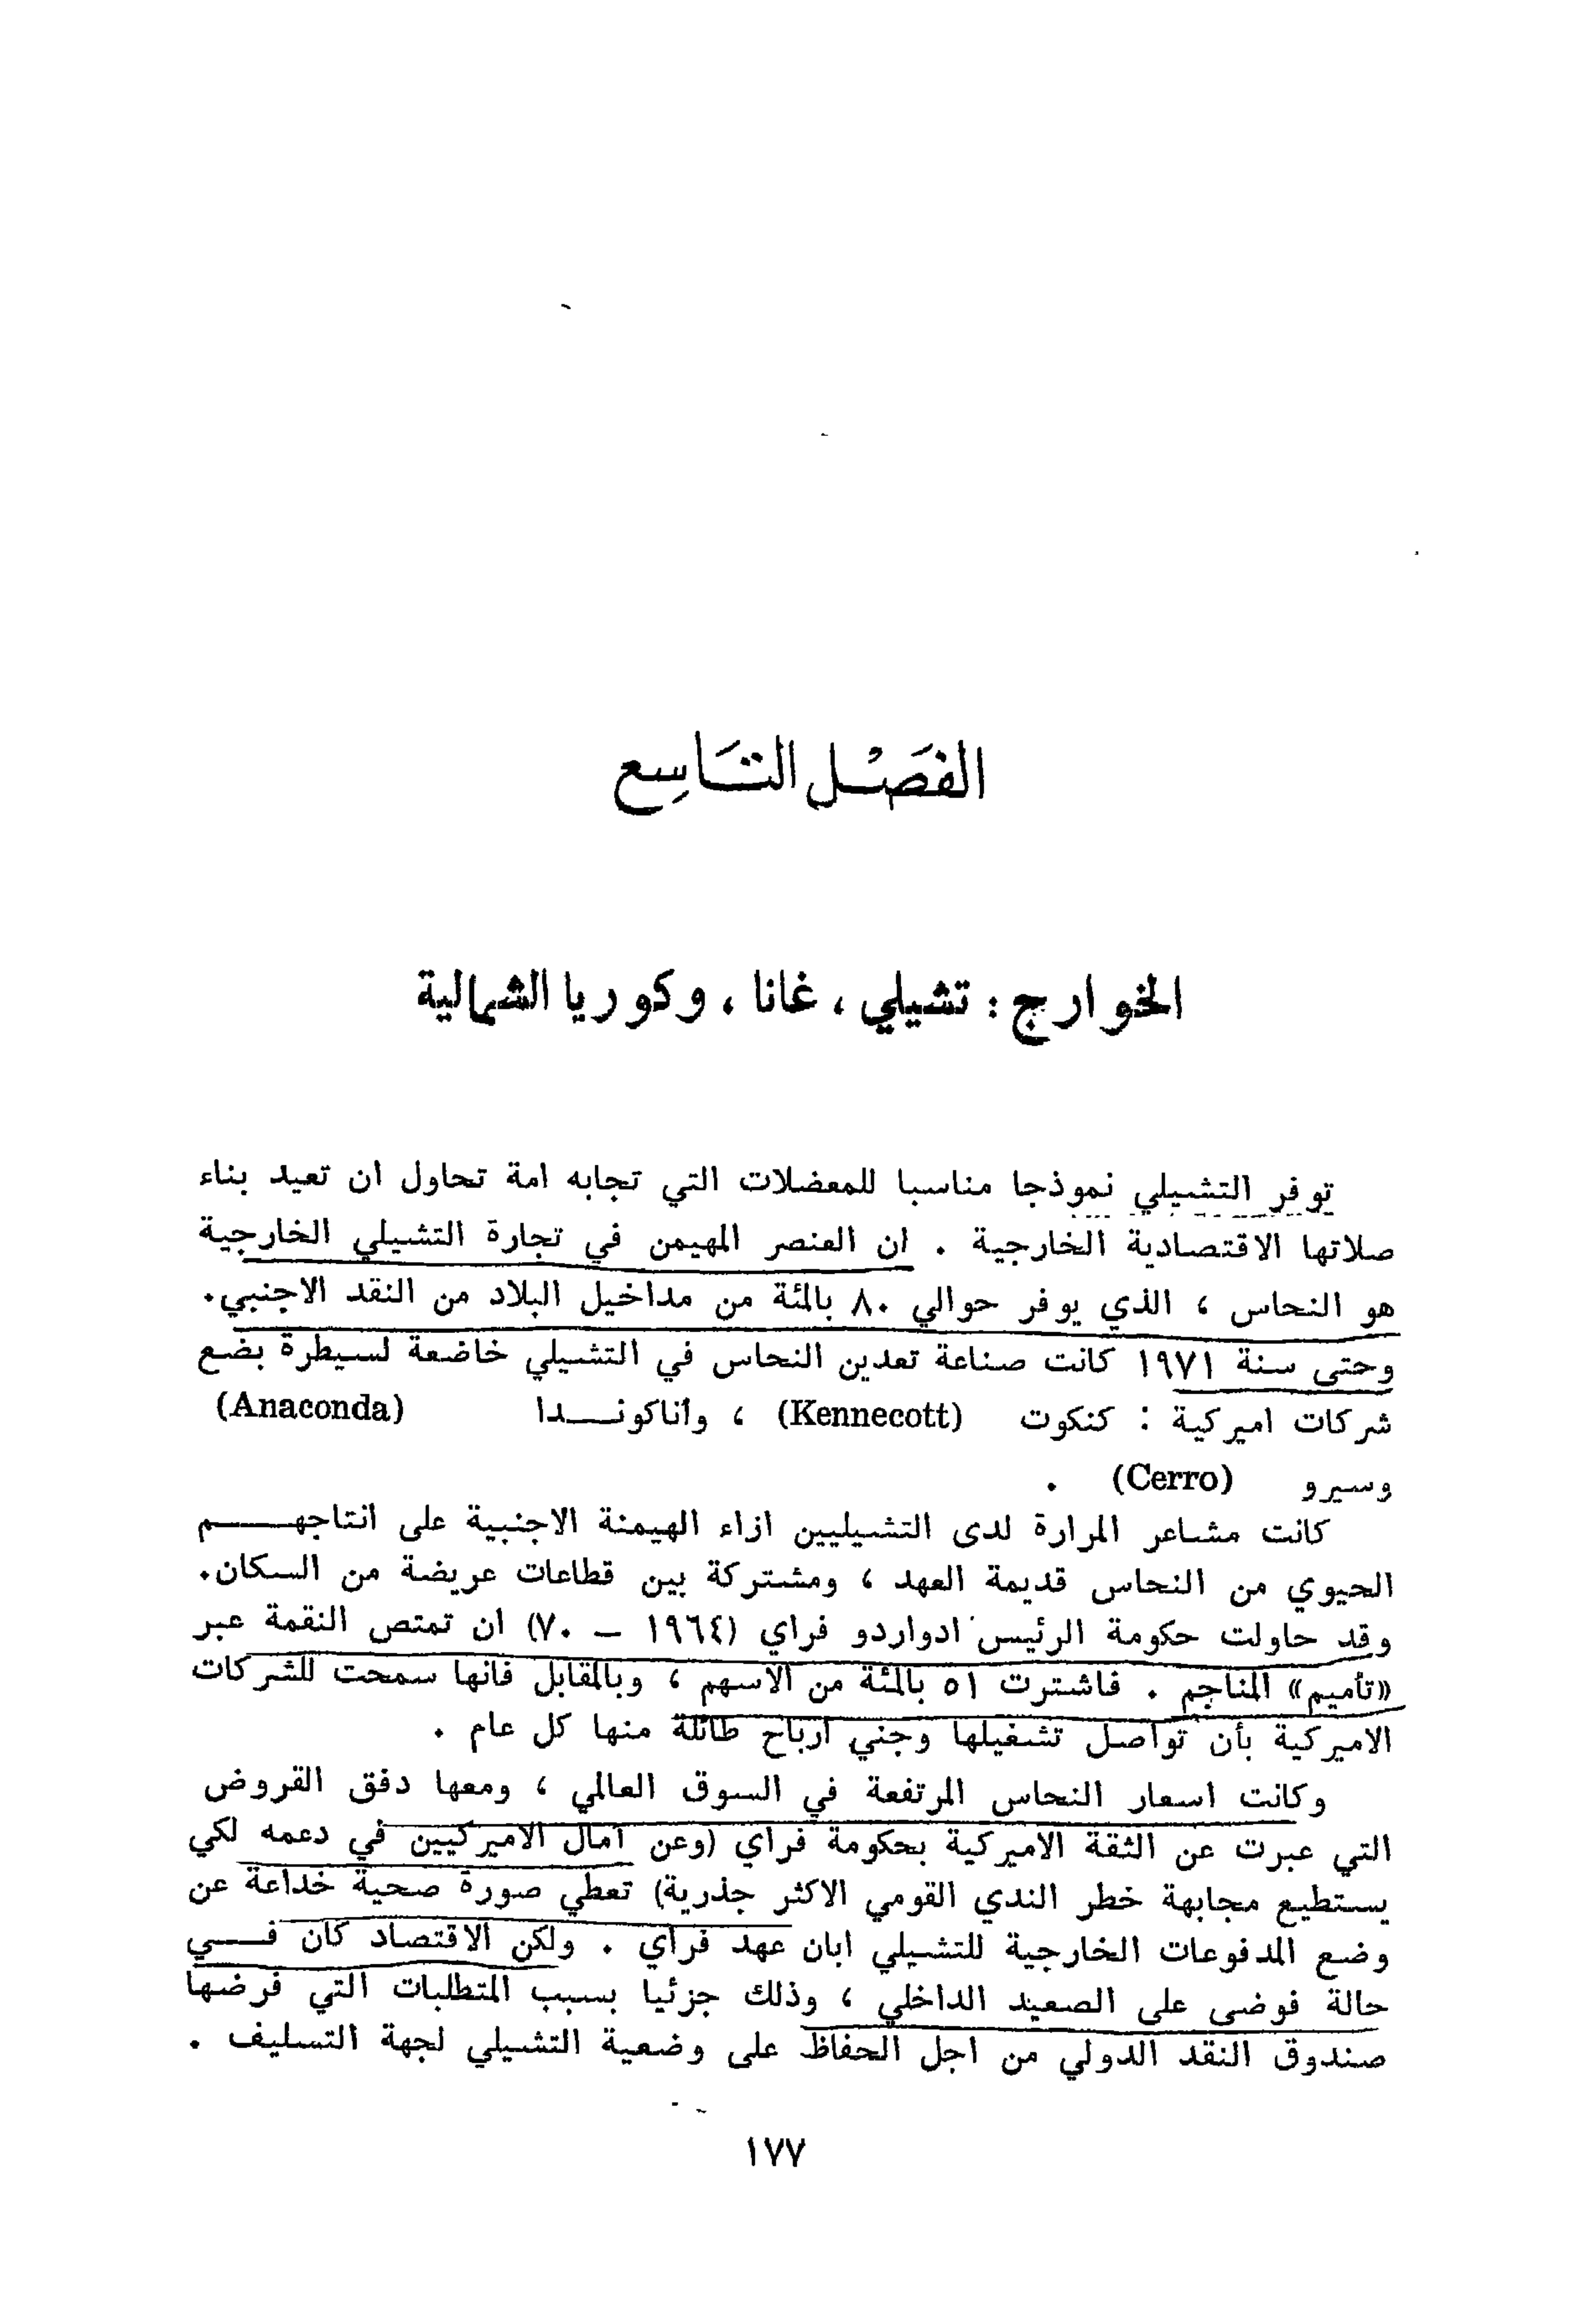 الفَصْل التَاسِع
الخوارج : تشيلي ، غانا ، وكوريا الشمالية
توفر التشيلي نموذجا مناسبا للمعضلات التي تجابه امة تحاول ان تعيد بناء
صلاتها الاقتصادية الخارجية . ان العنصر المهيمن في تجارة التشيلي الخارجية
هو النحاس ، الذي يوفر حوالي ٨٠ بالمئة من مداخيل البلاد من النقد الاجنبي.
وحتى سنة ١٩٧١ كانت صناعة تعدين النحاس في التشيلي خاضعة لسيطرة بضع
شركات اميركية : كنكوت (Kennecott) ، وأناكونـــدا (Anaconda)
وسيرو (Cerro) .
كانت مشاعر المرارة لدى التشيليين ازاء الهيمنة الاجنبية على انتاجهـــــم
الحيوي من النحاس قديمة العهد ، ومشتركة بين قطاعات عريضة من السكان.
وقد حاولت حكومة الرئيس ادواردو فراي (١٩٦٤ – ٧٠) ان تمتص النقمة عبر
«تأميم» المناجم . فاشترت ٥١ بالمئة من الاسهم ، وبالمقابل فانها سمحت للشركات
الاميركية بأن تواصل تشغيلها وجني ارباح طائلة منها كل عام .
وكانت اسعار النحاس المرتفعة في السوق العالمي ، ومعها دفق القروض
التي عبرت عن الثقة الاميركية بحكومة فراي (وعن آمال الاميركيين في دعمه لكي
يستطيع مجابهة خطر الندي القومي الاكثر جذرية) تعطي صورة صحية خداعة عن
وضع المدفوعات الخارجية للتشيلي ابان عهد فراي . ولكن الاقتصاد كان فـــي
حالة فوضى على الصعيد الداخلي ، وذلك جزئيا بسبب المتطلبات التي فرضها
صندوق النقد الدولي من اجل الحفاظ على وضعية التشيلي لجهة التسليف .
١٧٧